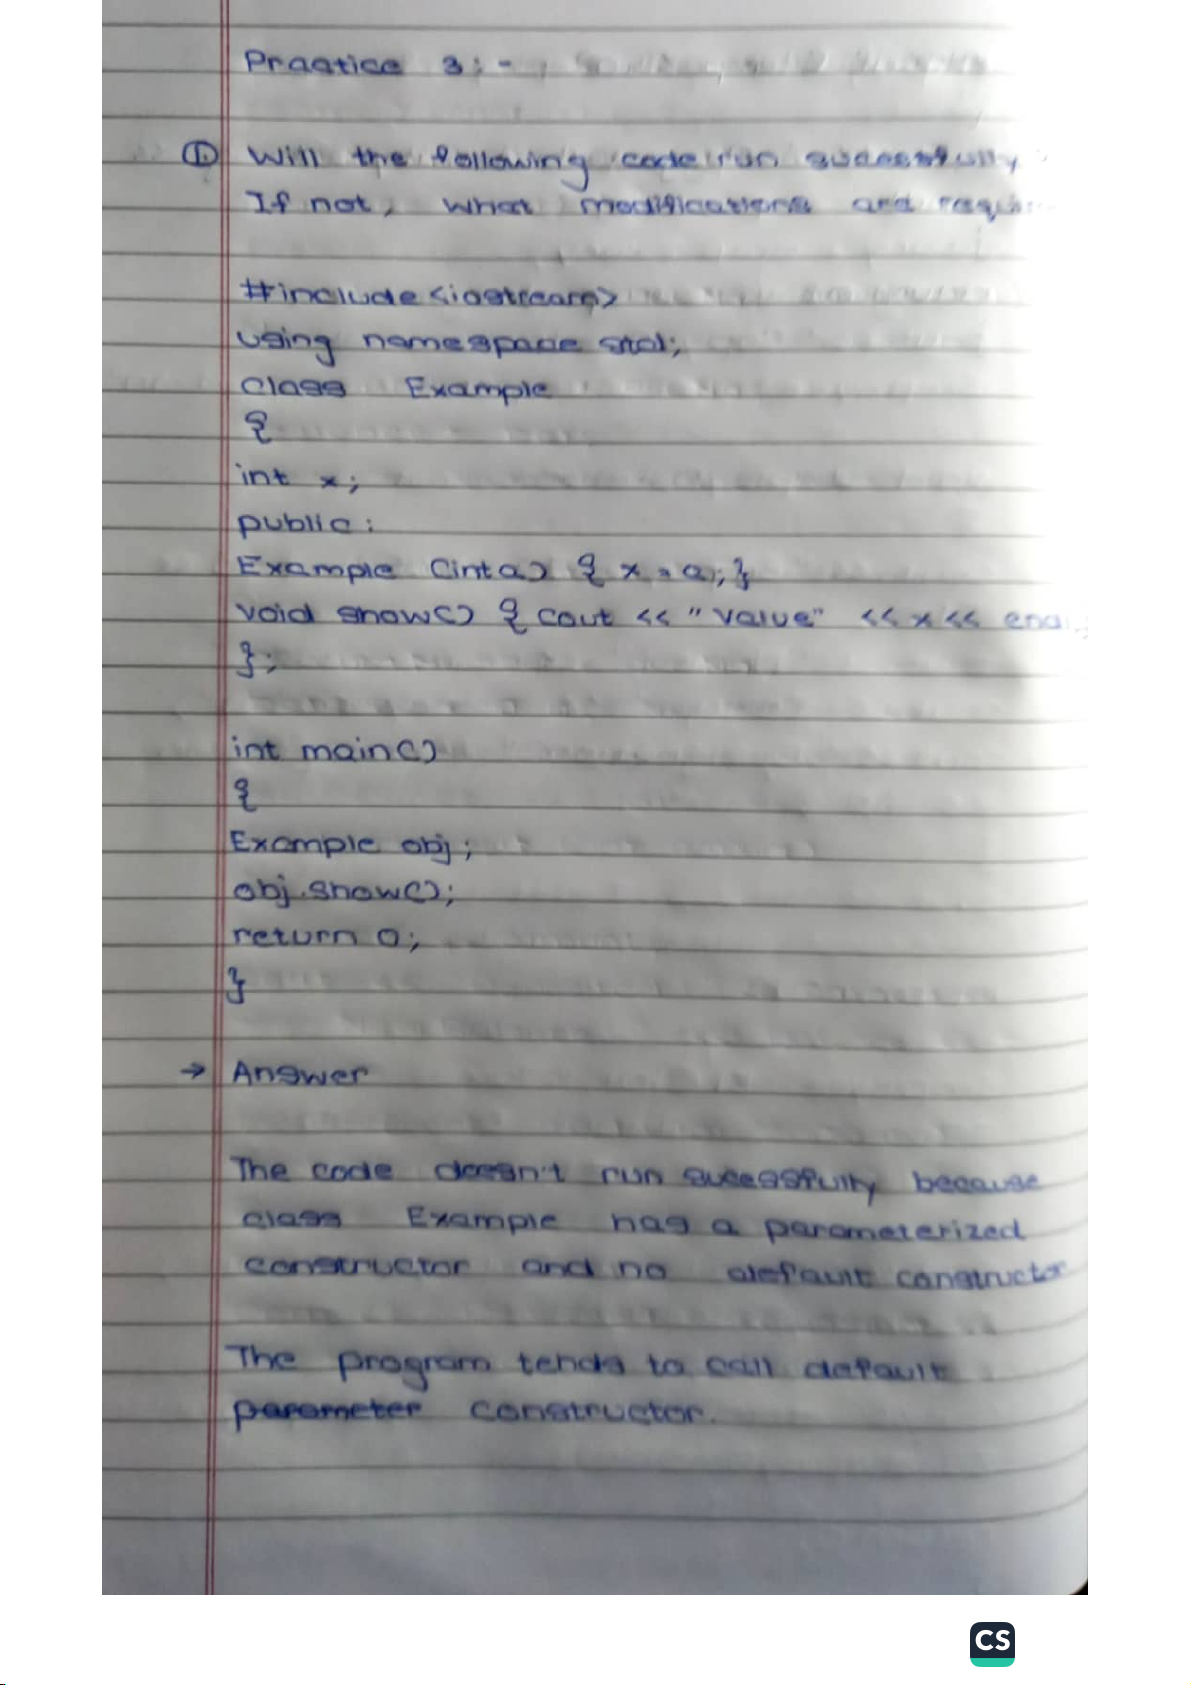 Practice 3:-
① Will the following code run sucessfully
If not, what modifications are
#include<iostream>
using namespace std;
class Example
{
int x;
public:
Example (int a) { x = a; }
void show() { cout << "value" << x <<
};
int main()
{
Example obj;
obj.show();
return 0;
}
→ Answer
The code doesn't run sucessfully because
class Example has a parameterized
constructor and no default constructor
The program tends to call default
parameter constructor.
CS